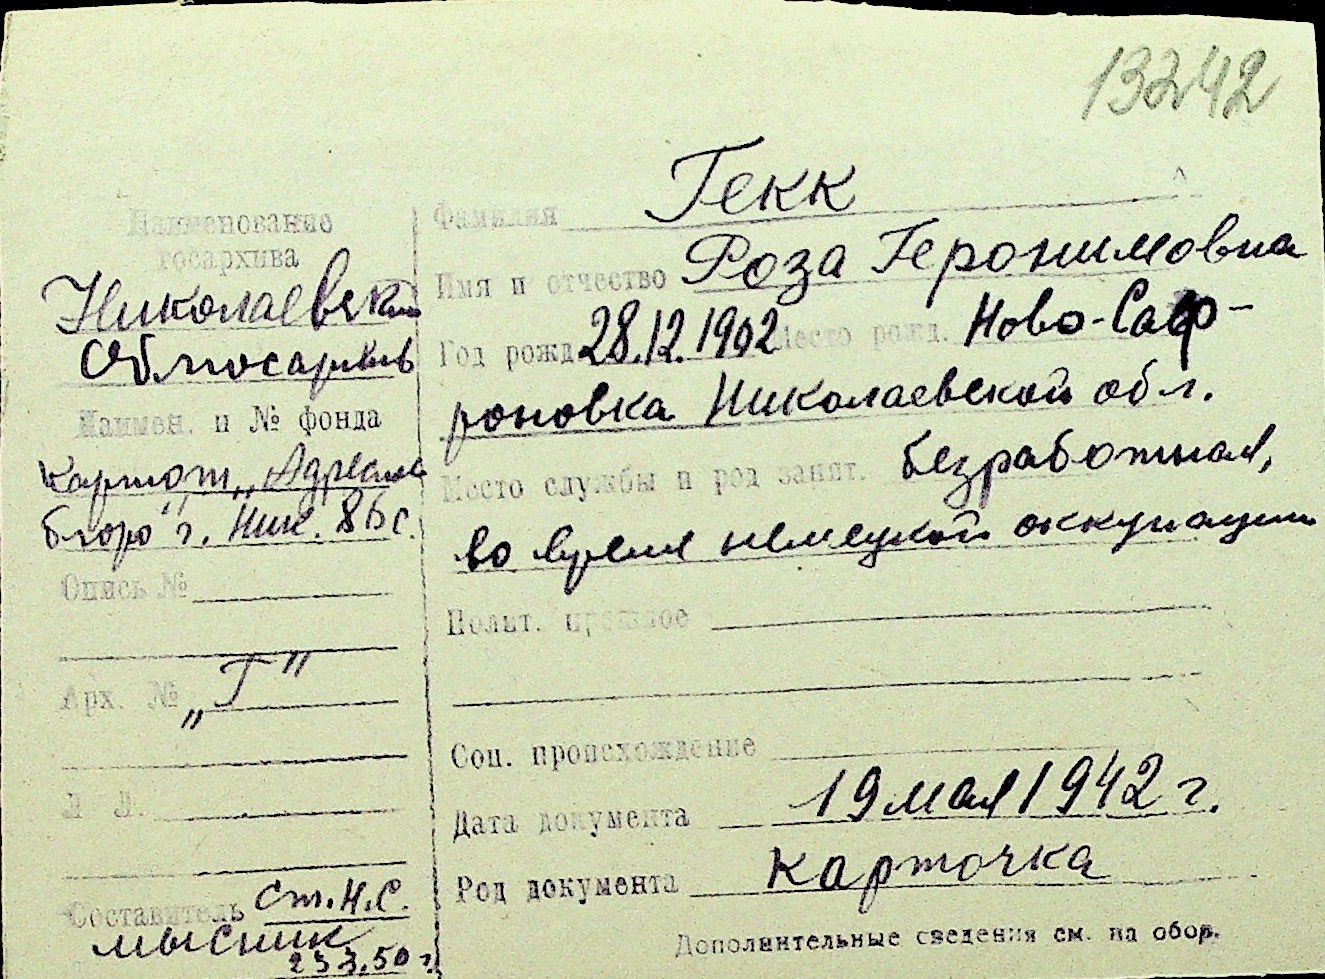 13242
Наименование
госархива
Николаевский
Облгосархив
Наимен. и № фонда
картот. „Адресное
бюро" г. Ник.
Опись №
Арх. № „Г"
Л Л.
Составитель ст. н. с.
Мысник
Фамилия Гекк
Имя и отчество Роза Геронимовна
Год рожд. 28.12.1902 Место рожд. Ново-Саф-
роновка Николаевской обл.
Место службы и род занят. безработная,
во время немецкой оккупации
Полит. прошлое
Соц. происхождение
Дата документа 19 мая 1942 г.
Род документа карточка
Дополнительные сведения см. на обор.